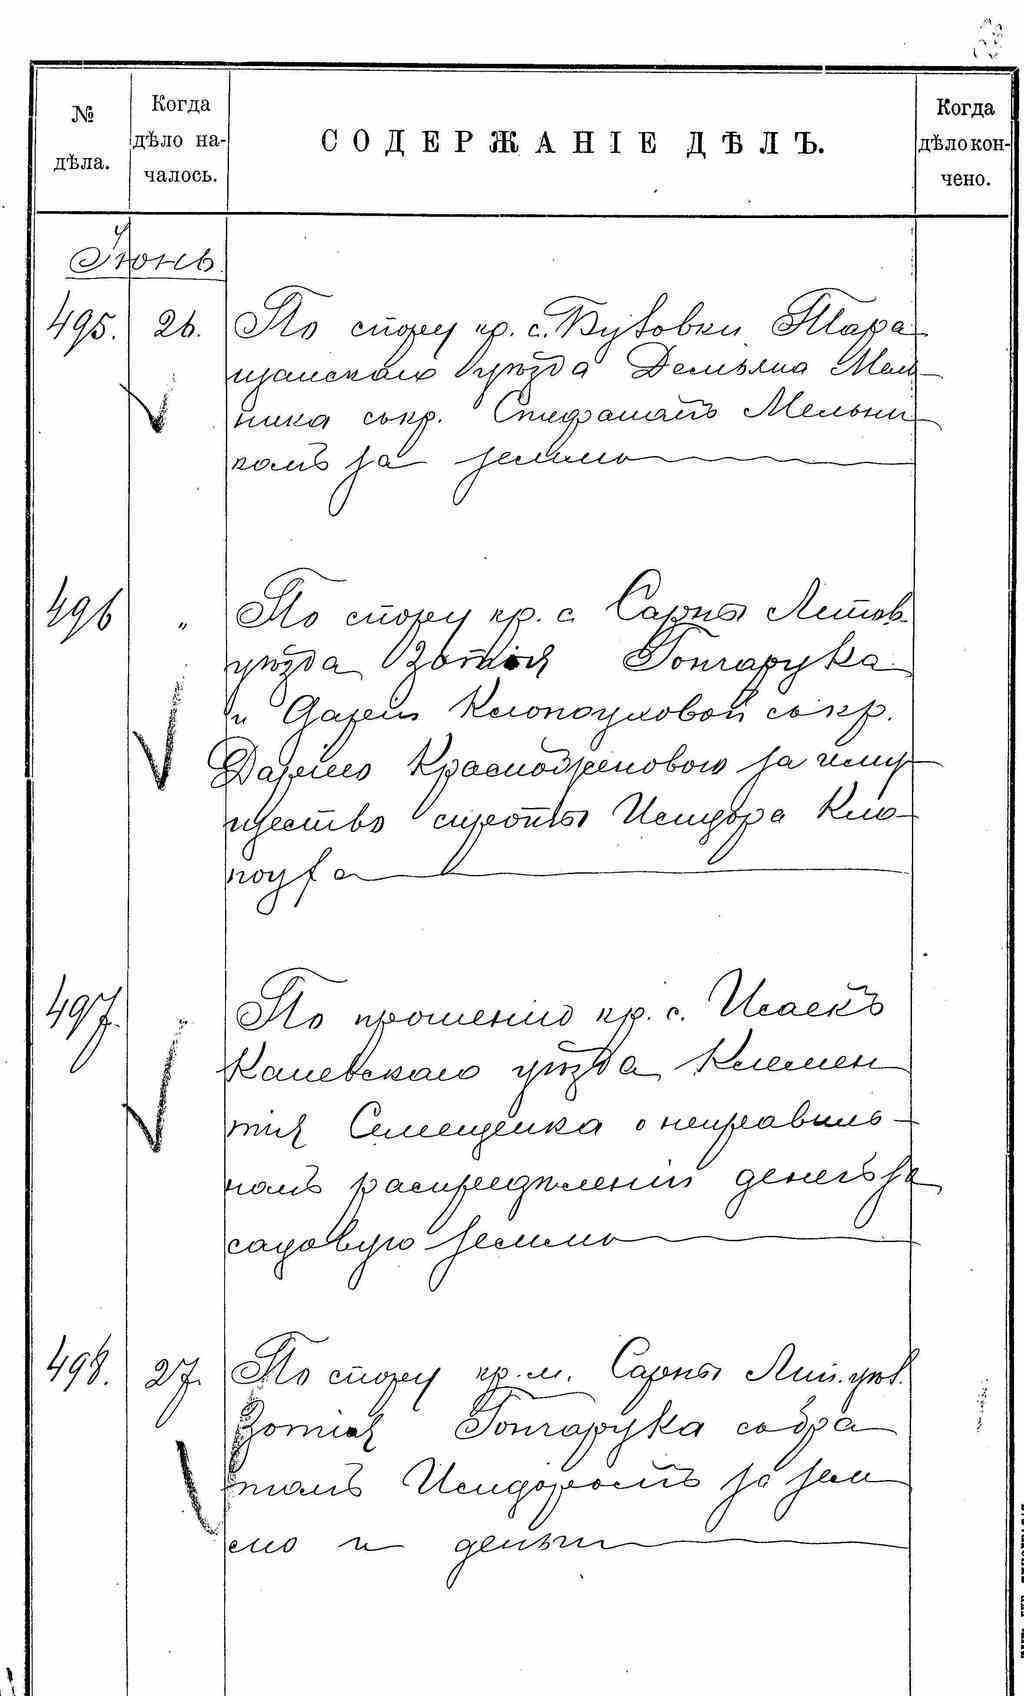 № дѣла.
Когда дѣло на-
чалось.
СОДЕРЖАНІЕ ДѢЛЪ.
Когда дѣло кон-
чено.
Іюнь
495. 26. По спору кр. с. Бузовки Тара
щанскаго уѣзда Демьяна Мель
ника съ кр. Стефаномъ Мельни
комъ за землю
496 " По спору кр. с. Сарны Липов.
уѣзда Зотія Гончарука
и Дарьи Клопоуховой съ кр.
Дарьею Краснобреновою за иму
щество сироты Исидора Кло-
поуха
497. " По прошенію кр. с. Исаекъ
Каневскаго уѣзда Клемен
тія Семещенка о неправиль-
номъ распредѣленіи денегъ за
садовую землю
498. 27. По спору кр. м. Сарны Лип. уѣз.
Зотія Гончарука съ бра
томъ Исидоромъ за зем
лю и деньги